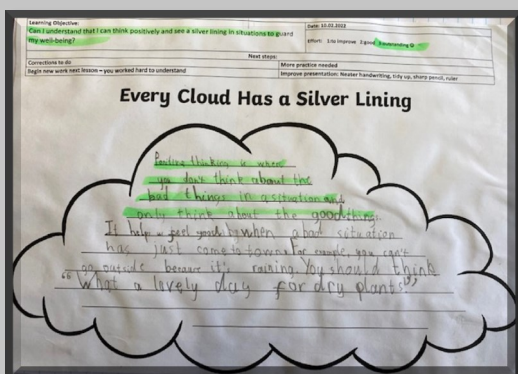 Learning Objective:
Can I understand that I can think positively and see a silver lining in situations to guard
my well-being?
Date: 10.02.2023
Effort: 1 to improve 2 good 3 outstanding ☺
Next steps:
Corrections to do
More practice needed
Begin new work next lesson – you worked hard to understand
Improve presentation: Neater handwriting, tidy up, sharp pencil, ruler
Every Cloud Has a Silver Lining
Positive thinking is when
you don't think about the
bad things in a situation and
only think about the good things.
It help feel when a bad situation
has just come to town. For example, you can't
go outside because it's raining. You should think
"What a lovely day for dry plants"